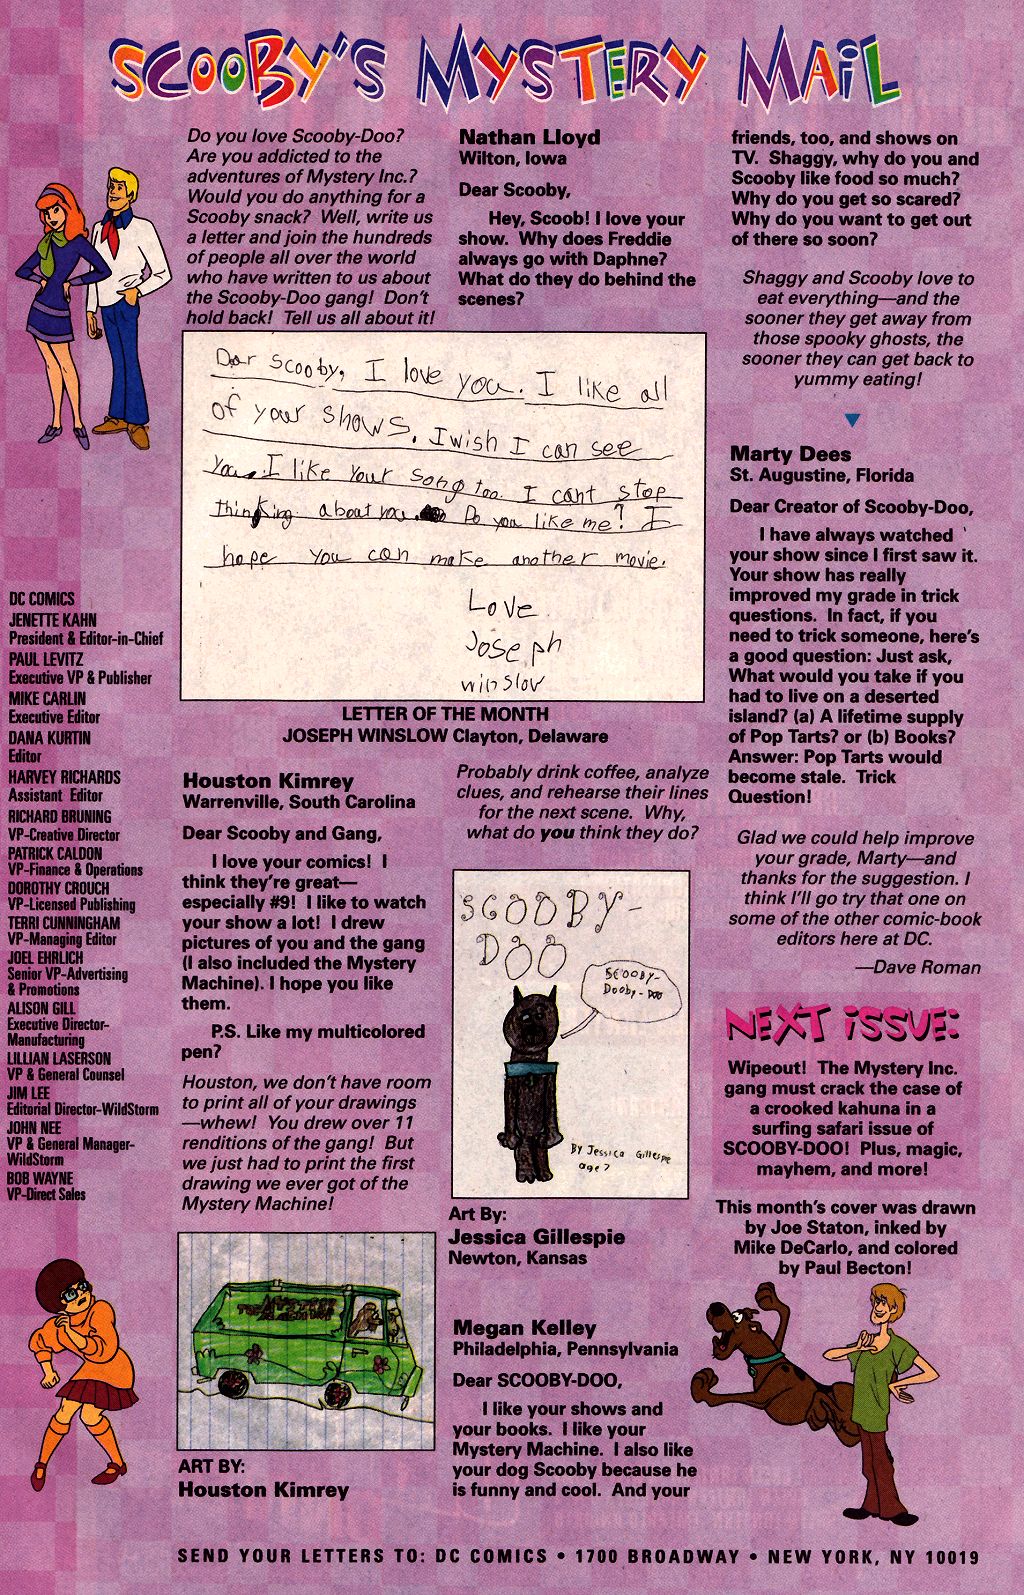 SCOOBY'S MYSTERY MAIL
Do you love Scooby-Doo?
Are you addicted to the
adventures of Mystery Inc.?
Would you do anything for a
Scooby snack? Well, write us
a letter and join the hundreds
of people all over the world
who have written to us about
the Scooby-Doo gang! Don't
hold back! Tell us all about it!
Dear Scooby, I love you. I like all
of your shows. I wish I can see
you. I like your song too. I cant stop
thinking about you. Do you like me? I
hope you can make another movie.
Love
Joseph
winslow
LETTER OF THE MONTH
JOSEPH WINSLOW Clayton, Delaware
DC COMICS
JENETTE KAHN
President & Editor-in-Chief
PAUL LEVITZ
Executive VP & Publisher
MIKE CARLIN
Executive Editor
DANA KURTIN
Editor
HARVEY RICHARDS
Assistant Editor
RICHARD BRUNING
VP-Creative Director
PATRICK CALDON
VP-Finance & Operations
DOROTHY CROUCH
VP-Licensed Publishing
TERRI CUNNINGHAM
VP-Managing Editor
JOEL EHRLICH
Senior VP-Advertising
& Promotions
ALISON GILL
Executive Director-
Manufacturing
LILLIAN LASERSON
VP & General Counsel
JIM LEE
Editorial Director-WildStorm
JOHN NEE
VP & General Manager-
WildStorm
BOB WAYNE
VP-Direct Sales
Houston Kimrey
Warrenville, South Carolina
Dear Scooby and Gang,
I love your comics! I
think they're great—
especially #9! I like to watch
your show a lot! I drew
pictures of you and the gang
(I also included the Mystery
Machine). I hope you like
them.
P.S. Like my multicolored
pen?
Houston, we don't have room
to print all of your drawings
—whew! You drew over 11
renditions of the gang! But
we just had to print the first
drawing we ever got of the
Mystery Machine!
THE MYSTERY
MACHINE
ART BY:
Houston Kimrey
Nathan Lloyd
Wilton, Iowa
Dear Scooby,
Hey, Scoob! I love your
show. Why does Freddie
always go with Daphne?
What do they do behind the
scenes?
Probably drink coffee, analyze
clues, and rehearse their lines
for the next scene. Why,
what do you think they do?
SCOOBY-
DOO
SCOOBY-
Dooby-Doo
By Jessica Gillespie
age 7
Art By:
Jessica Gillespie
Newton, Kansas
Megan Kelley
Philadelphia, Pennsylvania
Dear SCOOBY-DOO,
I like your shows and
your books. I like your
Mystery Machine. I also like
your dog Scooby because he
is funny and cool. And your
friends, too, and shows on
TV. Shaggy, why do you and
Scooby like food so much?
Why do you get so scared?
Why do you want to get out
of there so soon?
Shaggy and Scooby love to
eat everything—and the
sooner they get away from
those spooky ghosts, the
sooner they can get back to
yummy eating!
Marty Dees
St. Augustine, Florida
Dear Creator of Scooby-Doo,
I have always watched
your show since I first saw it.
Your show has really
improved my grade in trick
questions. In fact, if you
need to trick someone, here's
a good question: Just ask,
What would you take if you
had to live on a deserted
island? (a) A lifetime supply
of Pop Tarts? or (b) Books?
Answer: Pop Tarts would
become stale. Trick
Question!
Glad we could help improve
your grade, Marty—and
thanks for the suggestion. I
think I'll go try that one on
some of the other comic-book
editors here at DC.
—Dave Roman
NEXT ISSUE:
Wipeout! The Mystery Inc.
gang must crack the case of
a crooked kahuna in a
surfing safari issue of
SCOOBY-DOO! Plus, magic,
mayhem, and more!
This month's cover was drawn
by Joe Staton, inked by
Mike DeCarlo, and colored
by Paul Becton!
SEND YOUR LETTERS TO: DC COMICS • 1700 BROADWAY • NEW YORK, NY 10019